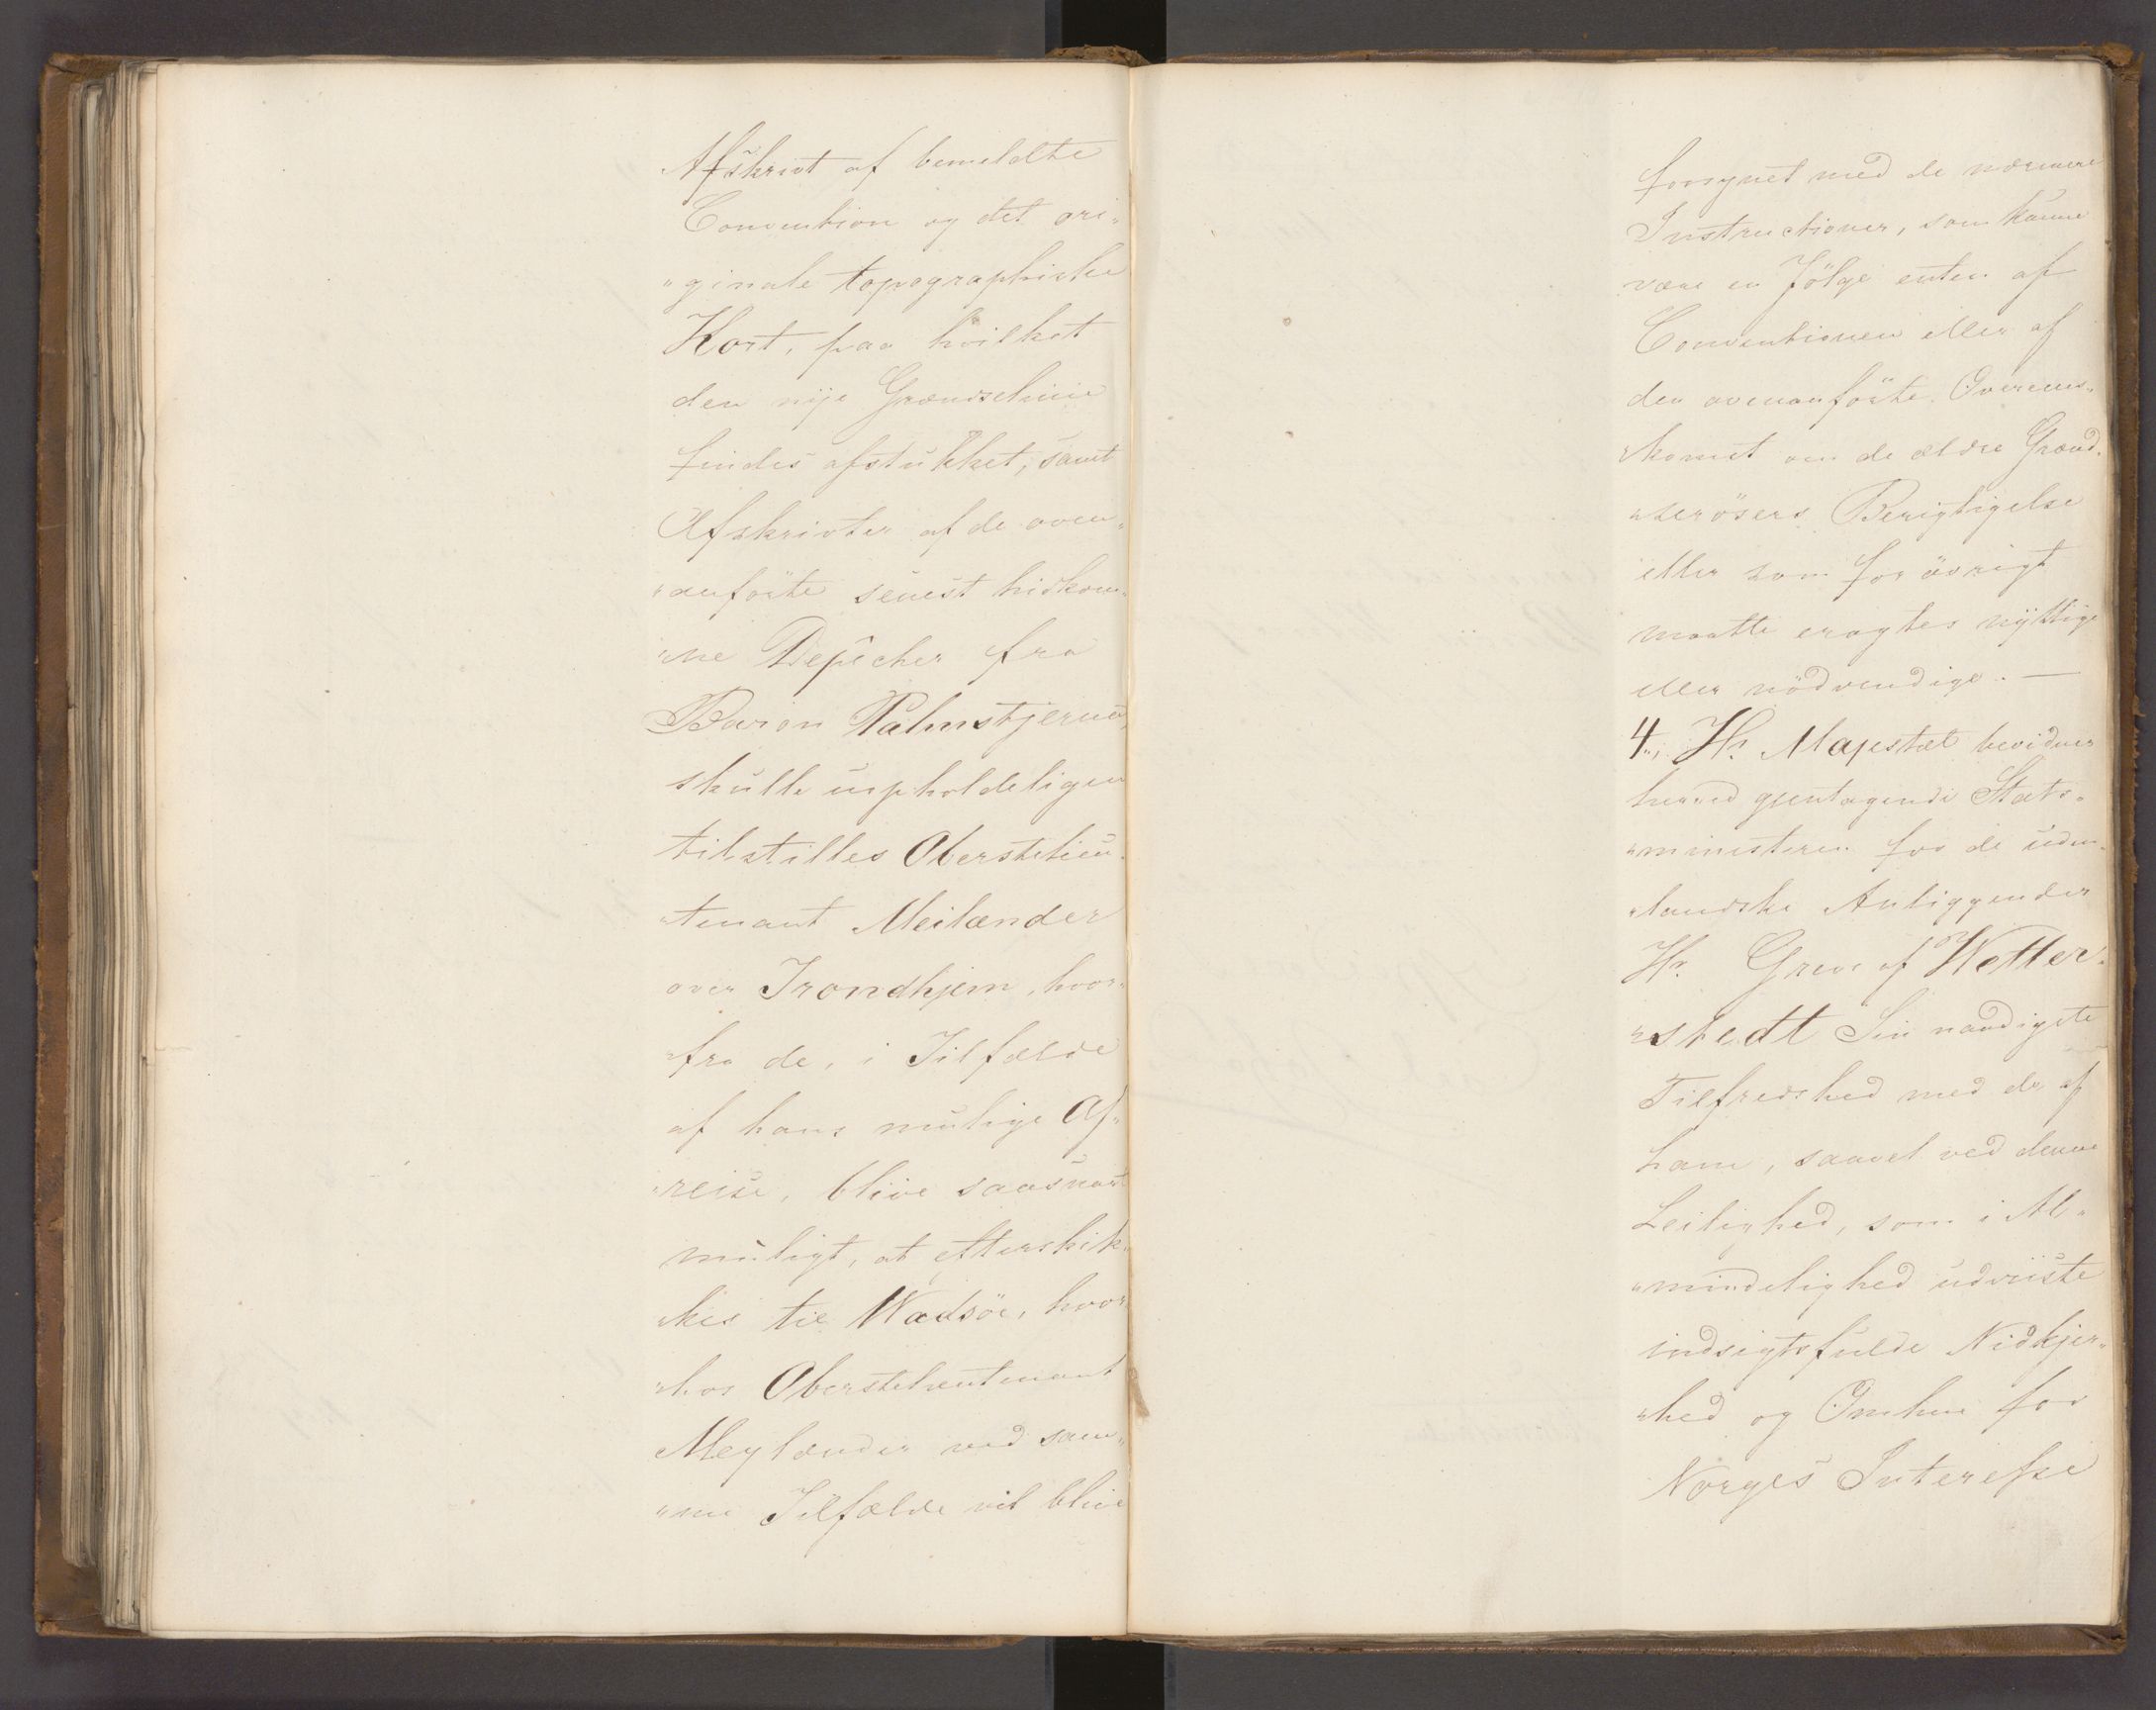 Afskrivt af bemeldte
Convention og det ori„
„ginale topographiske
Kort, paa hvilket
den nÿe Grændselinie
findes afstukket, samt
Afskrivter af de oven„
„anförte senest hidkom„
„ne Depêcher fra
Baron Palmstjerna,
skulle uopholdeligen
tilstilles Oberstelieu„
„tenant Meilænder
over Trondhjem, hvor„
„fra de, i Tilfælde
af hans mulige Af„
„reise, blive saasnart
muligt, at efterskik„
„kes til Wadsöe, hvor„
„hos Oberstelieutenant
Meylænder ved sam„
„me Tilfælde vil blive
forsynet med de nærmere
Instructioner, som kunne
være en Fölge enten af
Conventionen eller af
den ovenanförte Overens„
„komst om de ældre Grænd„
„serösers Berigtigelse
eller som for övrigt
maatte eragtes nÿttige
eller nödvendige. —
4., Hs. Majestæt bevidner
herved gjentagende Stats„
„ministeren for de uden„
„landske Anliggender
Hr. Greve af Wetter„
„stedt Sin naadigste
Tilfredshed med de af
ham, saavel ved denne
Leilighed, som i Al„
„mindelighed udviiste
indsigtsfulde Nidkjer„
„hed og Omhue for
Norges Interesse